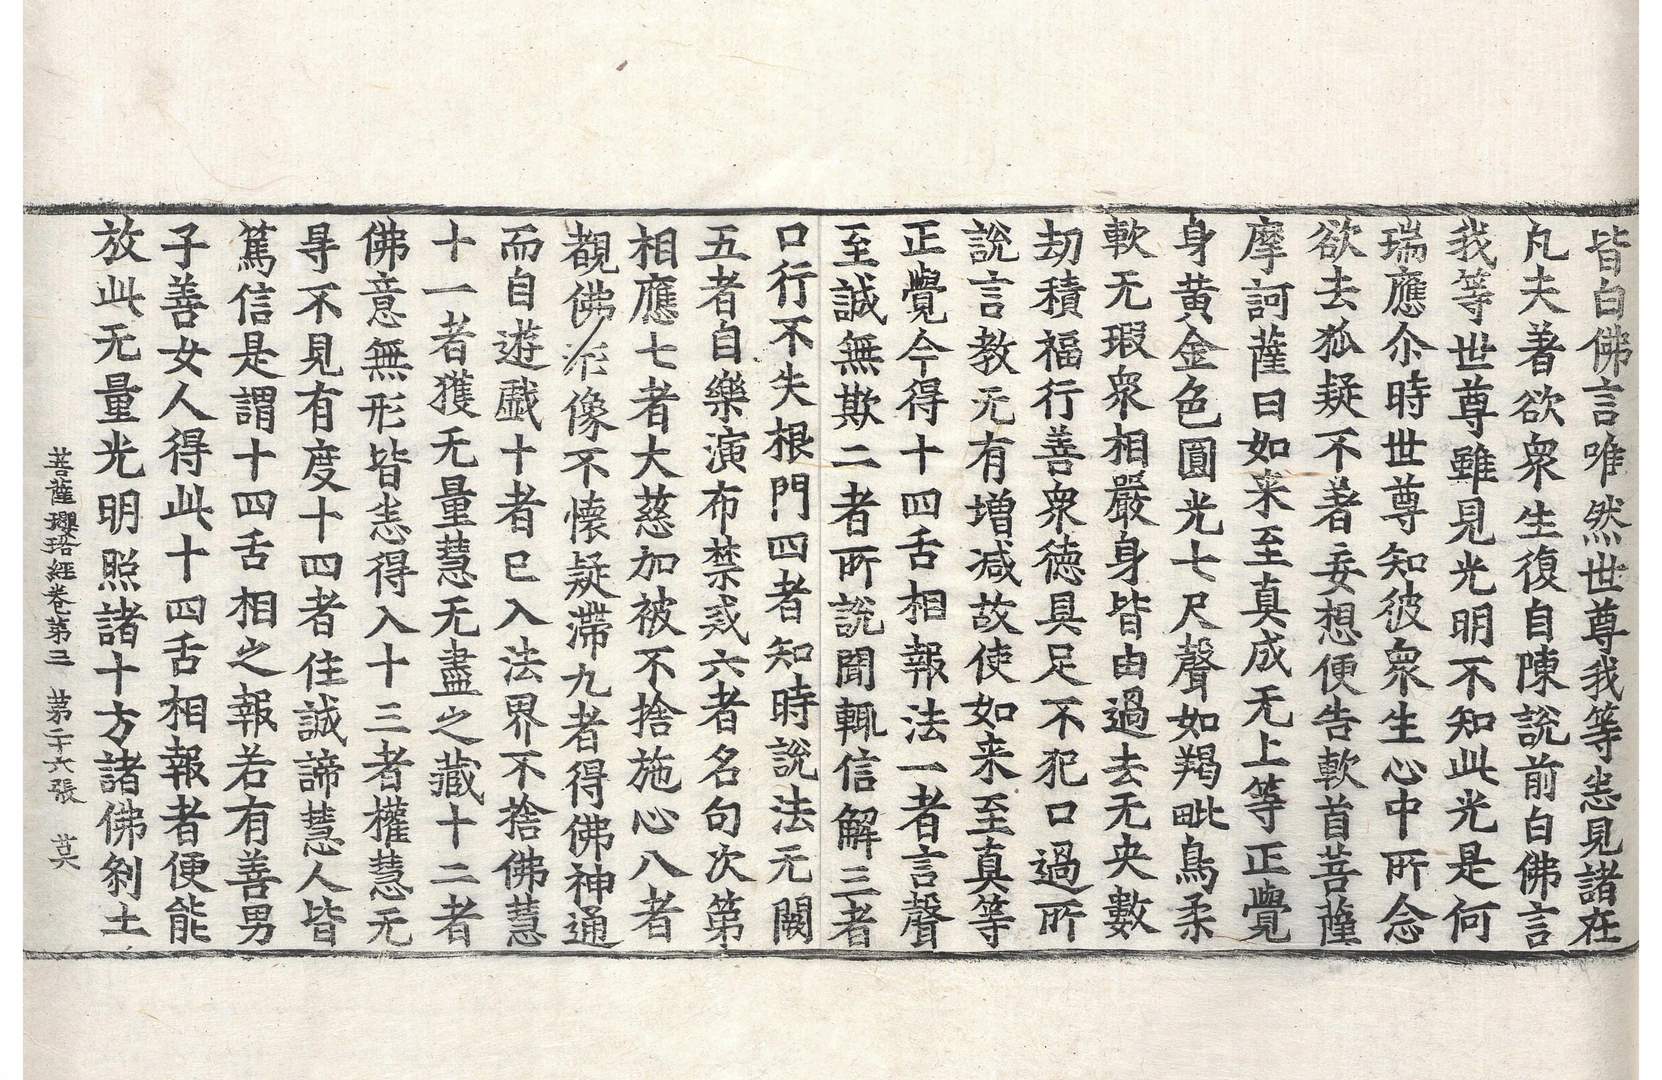 皆白佛言唯然世尊我等悉見諸在
凡夫著欲衆生復自陳說前白佛言
我等世尊雖見光明不知此光是何
瑞應尒時世尊知彼衆生心中所念
欲去狐疑不著妄想便告軟首菩薩
摩訶薩曰如来至真成无上等正覺
身黃金色圓光七尺聲如羯毗鳥柔
軟无瑕衆相嚴身皆由過去无央數
劫積福行善衆德具足不犯口過所
說言教无有增減故使如来至真等
正覺今得十四舌相報法一者言聲
至誠無欺二者所說聞輒信解三者
口行不失根門四者知時說法无闕
五者自樂演布禁戒六者名句次第
相應七者大慈加被不捨施心八者
覩佛形像不懷疑滯九者得佛神通
而自遊戲十者已入法界不捨佛慧
十一者獲无量慧无盡之藏十二者
佛意無形皆悉得入十三者權慧无
㝵不見有度十四者住誠諦慧人皆
篤信是謂十四舌相之報若有善男
子善女人得此十四舌相報者便能
放此无量光明照諸十方諸佛刹土
菩薩瓔珞經卷第三　第二十六張　莫